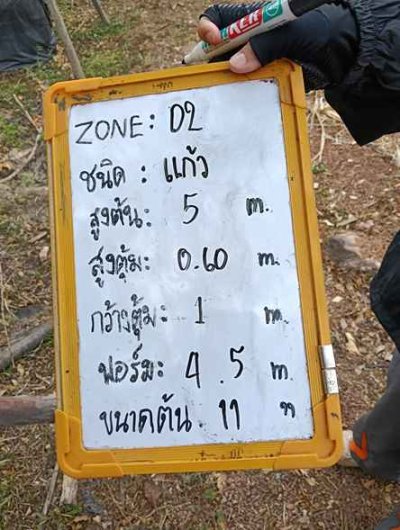 ZONE: D2
ชนิด : แก้ว
สูงต้น: 5 m.
สูงตุ้ม: 0.60 m.
กว้างตุ้ม: 1 m.
ฟอร์ม: 4.5 m.
ขนาดต้น. 11 "